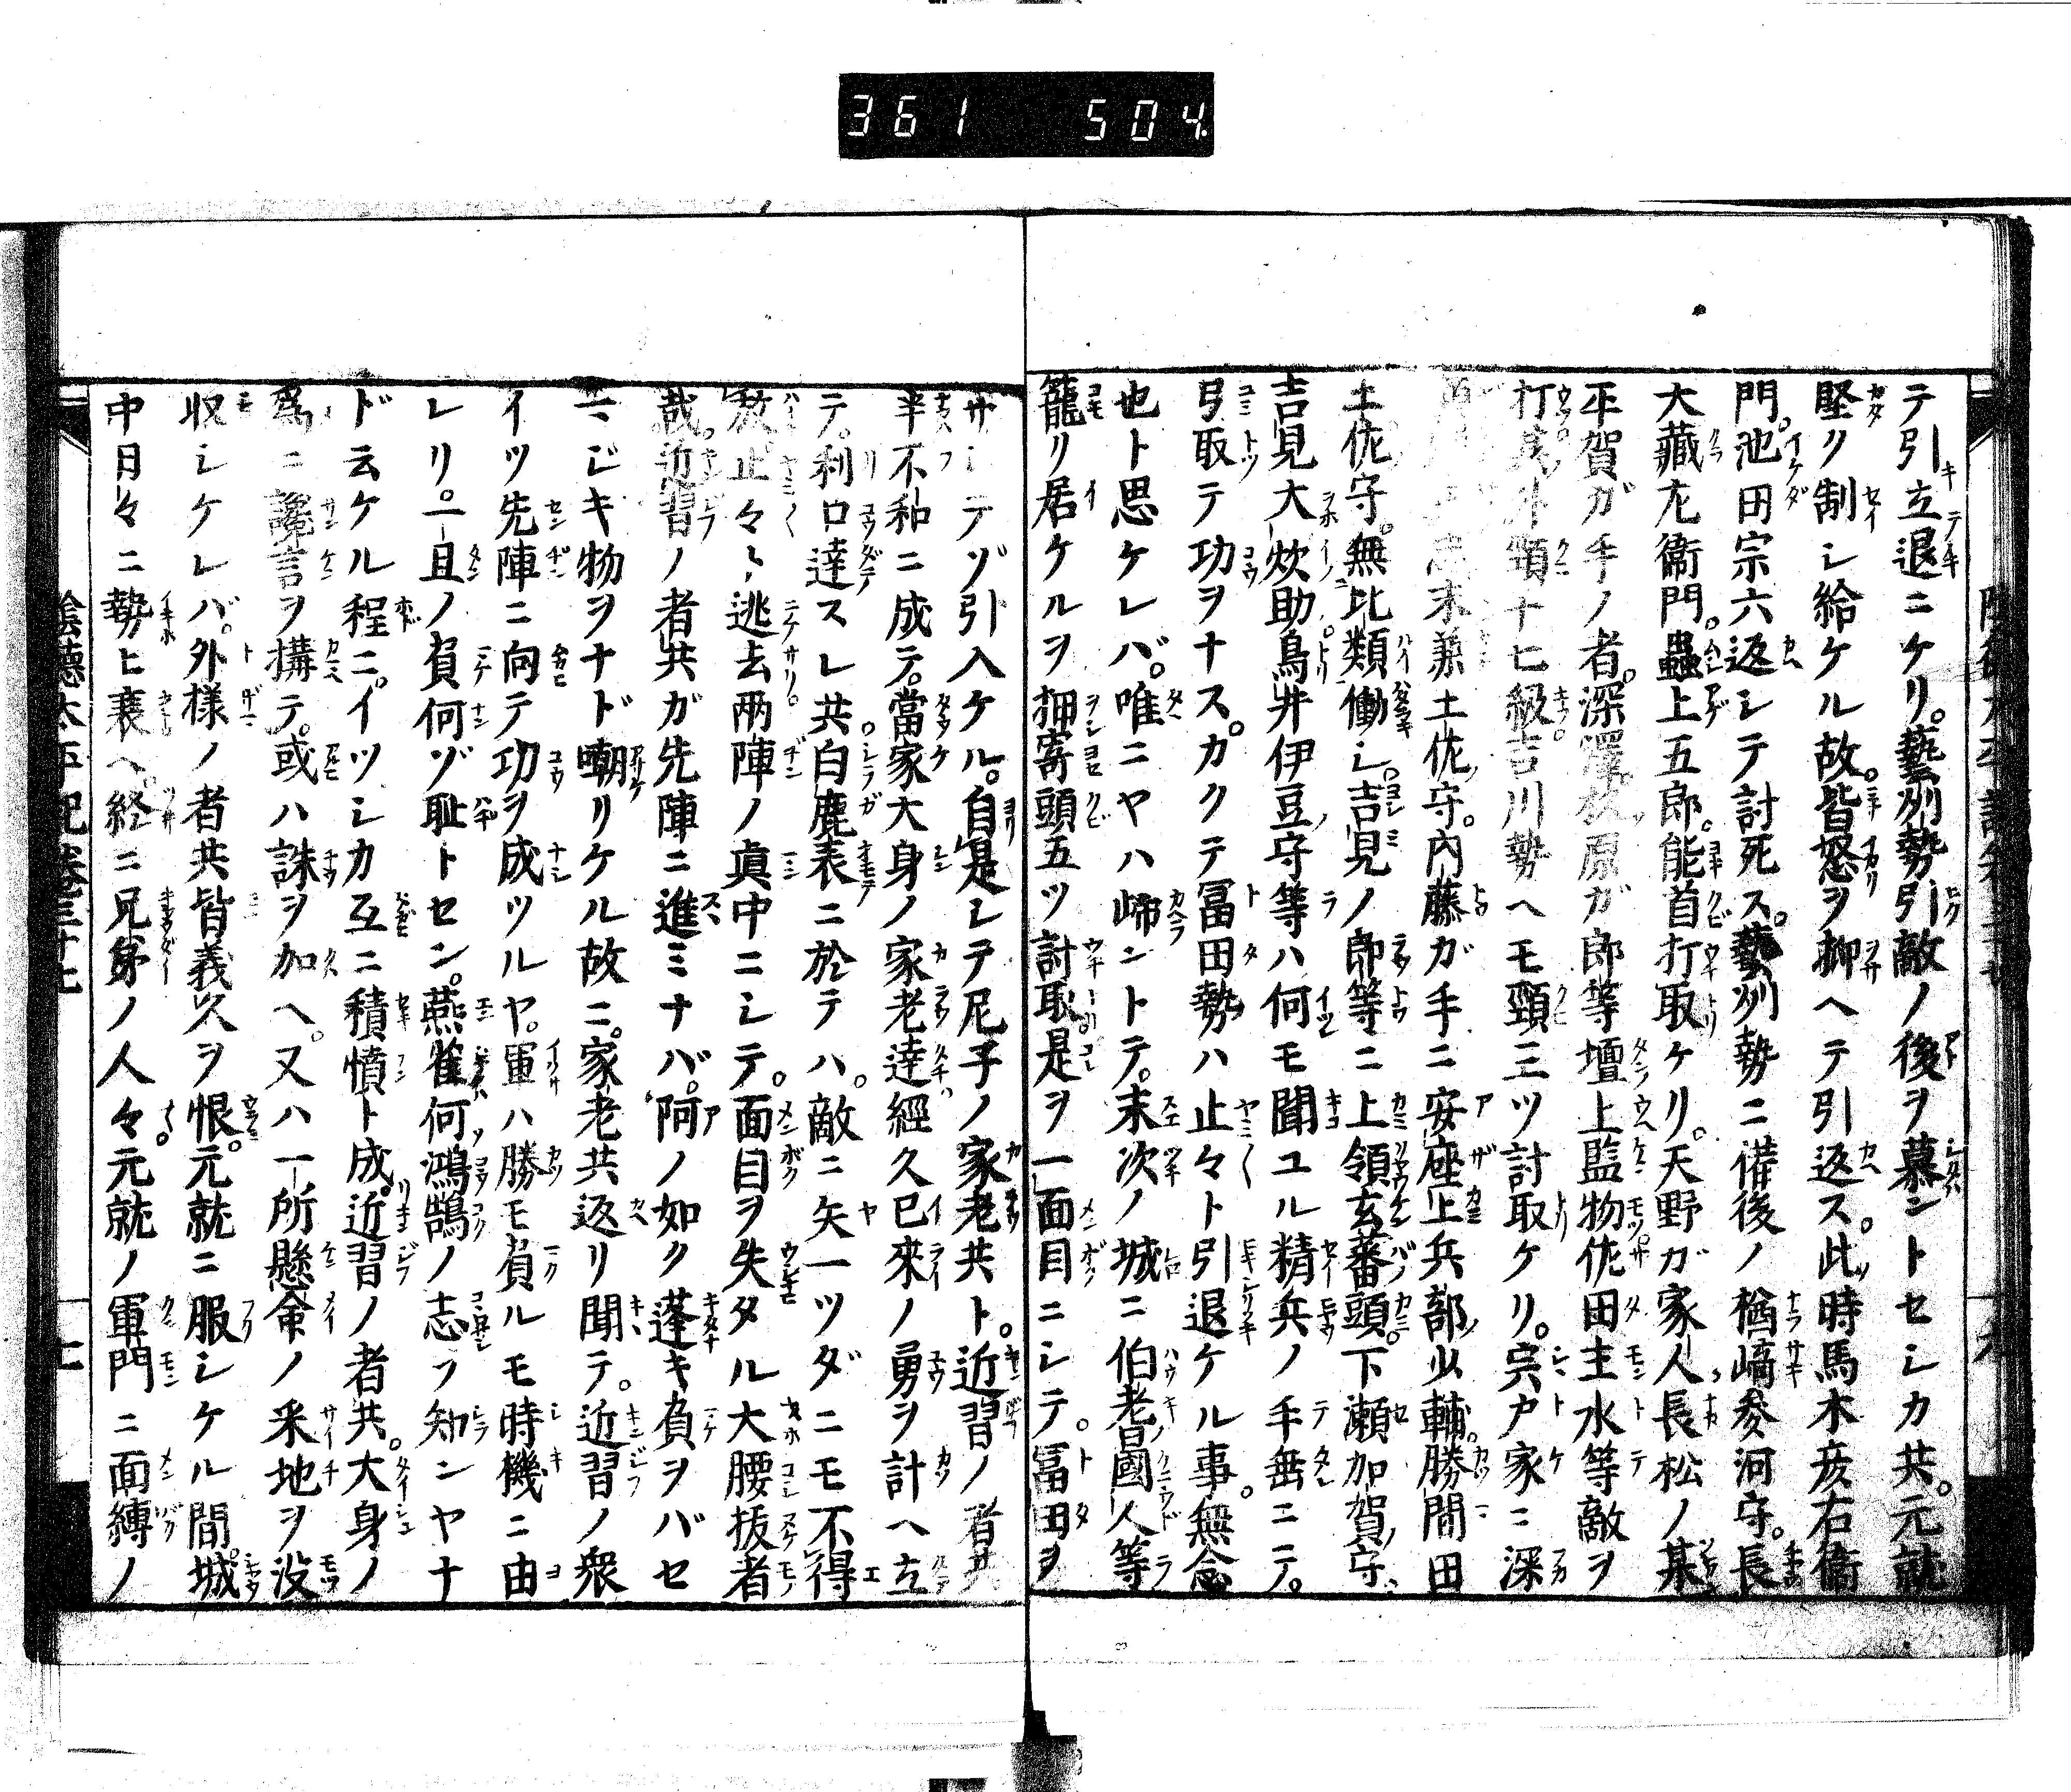 361 504
テ引立退ニケリ。藝州勢引敵ノ後ヲ慕ントセシカ共。元就
堅ク制シ給ケル故。皆怒ヲ抑ヘテ引返ス。此時馬木彦右衞
門。池田宗六返シテ討死ス。藝州勢ニ備後ノ楢﨑参河守。長
大藏左衞門。蟲上五郎。能首打取ケリ。天野ガ家人長松ノ某
平賀ガ手ノ者。深澤。秋原ガ郎等壇上監物佐田主水等敵ヲ
打。其外頸十七級。吉川勢ヘモ頸三ツ討取ケリ。宍戸家ニ深
末兼土佐守。內藤ガ手ニ安座上兵部少輔。勝間田
土佐守。無比類働シ。吉見ノ郎等ニ上領玄蕃頭。下瀬加賀守
吉見大炊助。鳥井伊豆守等ハ何モ聞ユル精兵ノ手垂ニテ。
弓取テ功ヲナス。カクテ冨田勢ハ止々ト引退ケル事。無念
也ト思ケレバ。唯ニヤハ皈ントテ。末次ノ城ニ伯耆國人等
籠リ居ケルヲ押寄頭五ツ討取。是ヲ一面目ニシテ。冨田ヲ
サシテゾ引入ケル。自是シテ尼子ノ家老共ト。近習ノ者共
半不和ニ成テ。當家大身ノ家老達經久已來ノ勇ヲ計ヘ立
テ。利口達スレ共。白鹿表ニ於テハ。敵ニ矢一ツダニモ不得
放止々ト逃去両陣ノ眞中ニシテ。面目ヲ失タル大腰抜者
哉。近習ノ者共ガ先陣ニ進ミナバ。阿ノ如ク蓬キ負ヲバセ
マジキ物ヲナド嘲リケル故ニ。家老共返リ聞テ。近習ノ衆
イツ先陣ニ向テ功ヲ成ツルヤ。軍ハ勝モ負ルモ時機ニ由
レリ。一且ノ負何ゾ耻トセン。燕雀何鴻鵠ノ志ヲ知ンヤナ
ド云ケル程ニ。イツシカ互ニ積憤ト成。近習ノ者共。大身ノ
爲ニ讒言ヲ搆テ。或ハ誅ヲ加ヘ。又ハ一所懸命ノ釆地ヲ没
収シケレバ。外様ノ者共皆義久ヲ恨。元就ニ服シケル間。城
中日々ニ勢ヒ衰ヘ。終ニ兄弟ノ人々。元就ノ軍門ニ面縛ノ
陰德太平記卷三十七